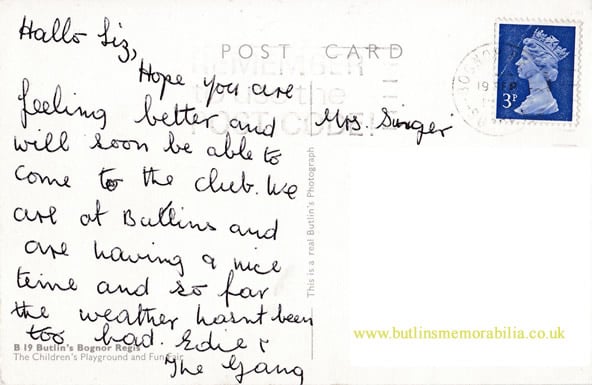 POST CARD
Hallo Liz,
Hope you are
feeling better and
will soon be able to
come to the club. We
are at Butlins and
are having a nice
teime and so far
the weather hasnt been
too bad. Edie &
The Gang
Mrs. Singer
REMEMBER
to use the
POST CODE
BOGNOR
19 SEP
3P
This is a real Butlin's Photograph
B 19 Butlin's Bognor Regis
The Children's Playground and Fun Fair
www.butlinsmemorabilia.co.uk